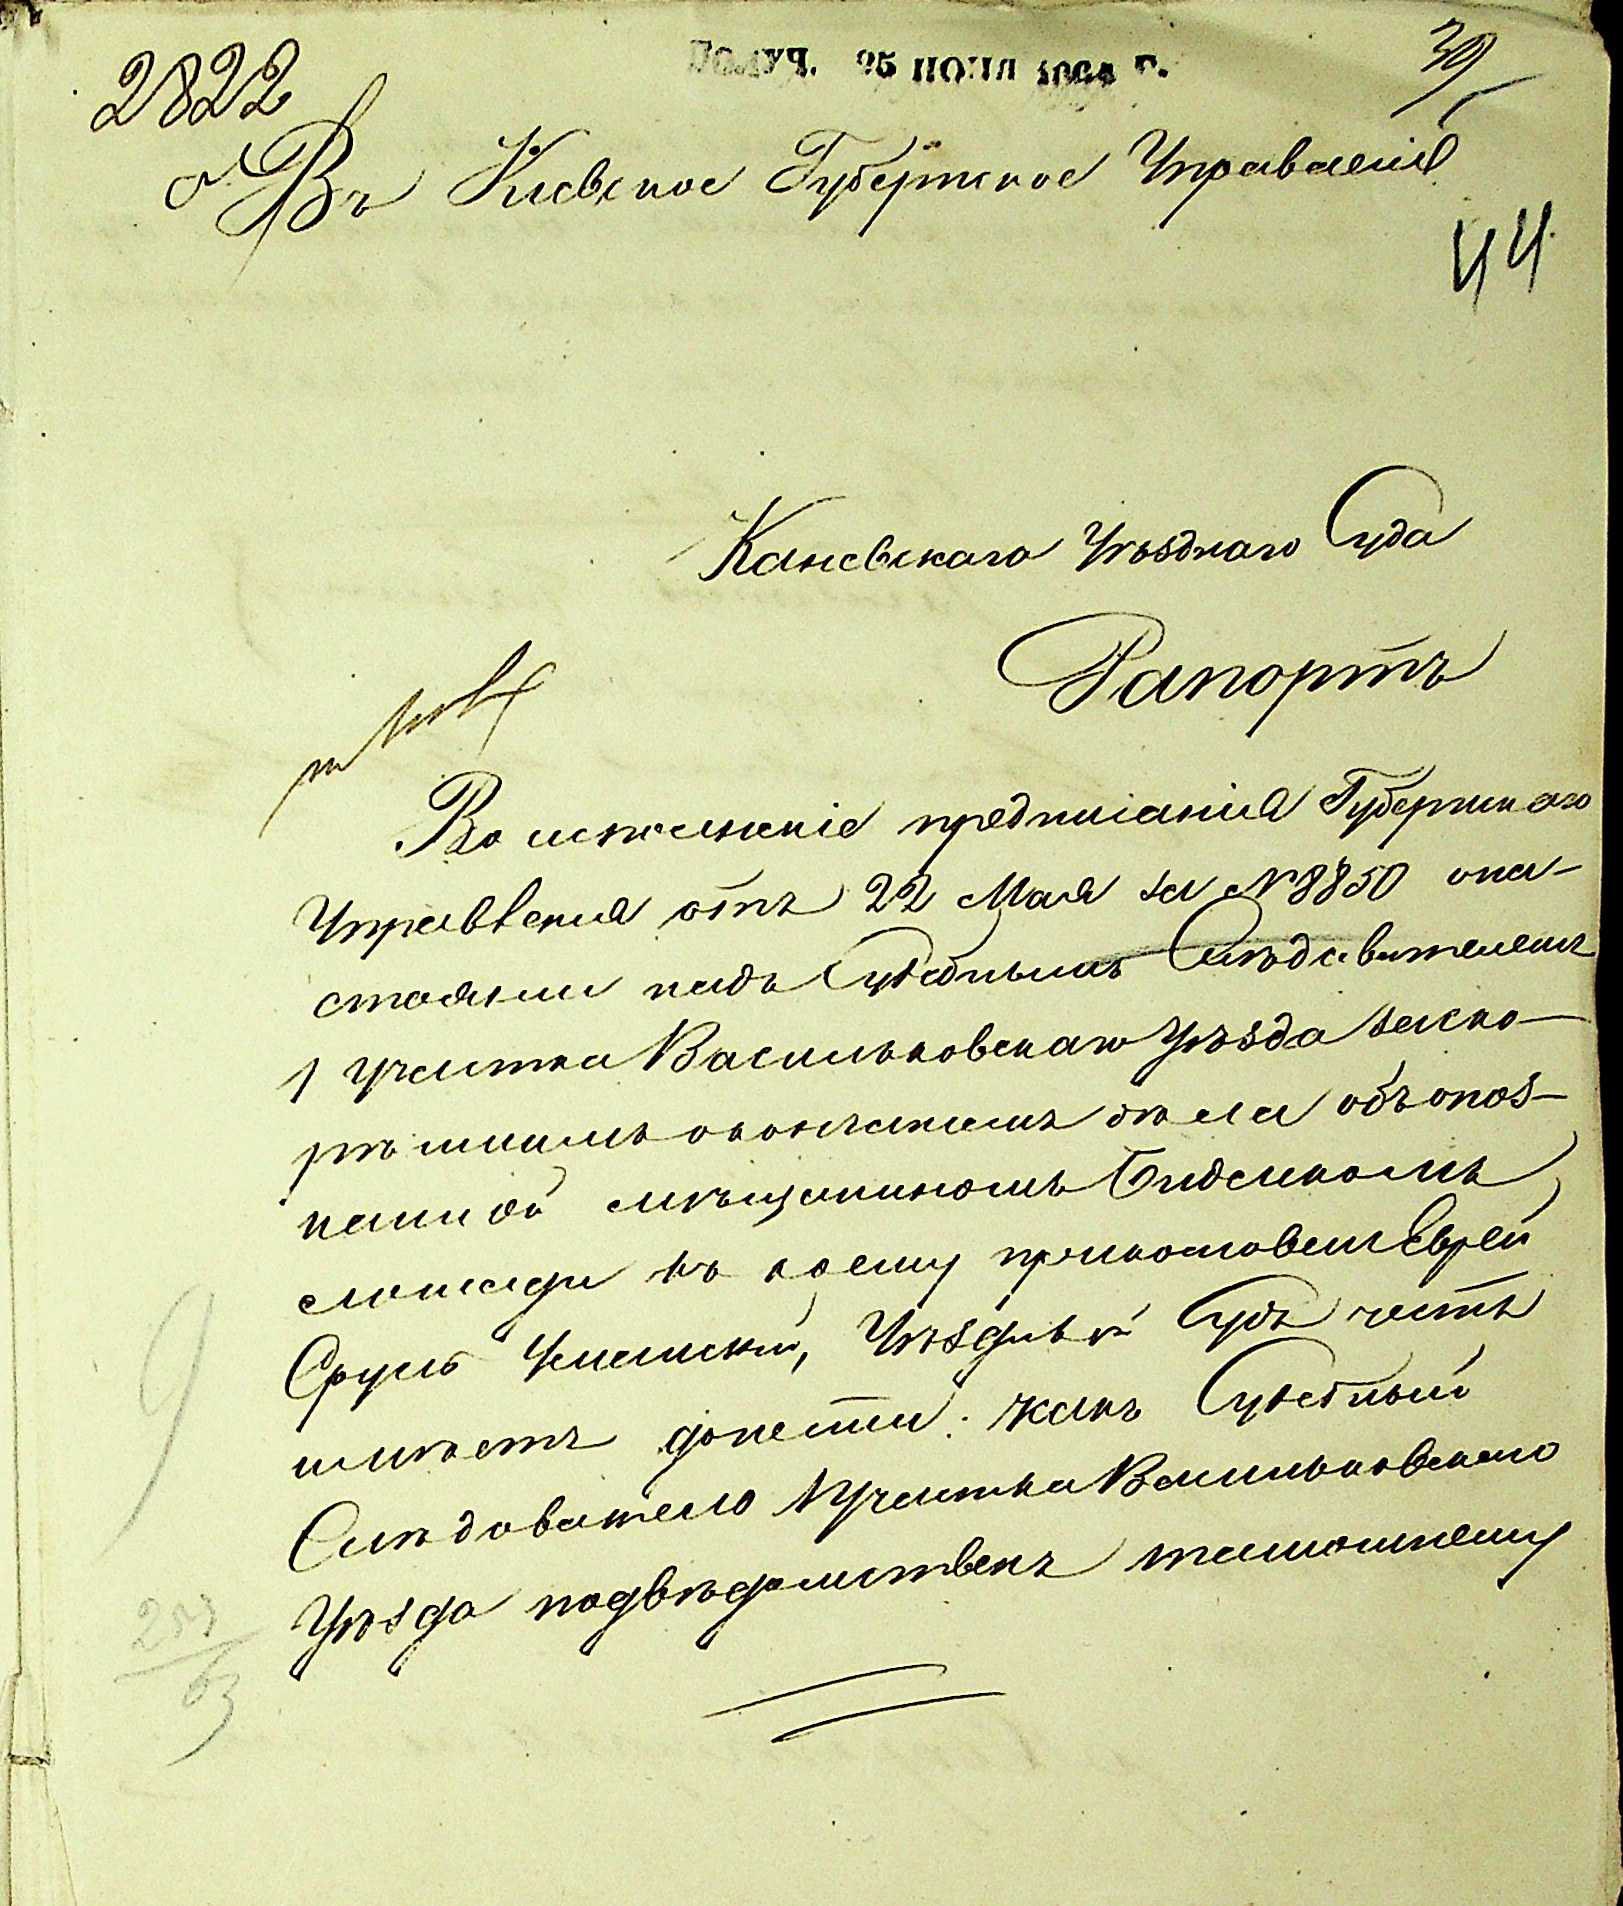 2822
ПОЛУЧ. 25 ІЮНЯ 1864 Г.
39
Въ Киевское Губернское Управленіе
44
Каневскаго Уѣзднаго Суда
Рапортъ
Во исполненіе предписанія Губернскаго
Управленія отъ 22 Мая за № 8850 о на-
стояніи надъ Судебнымъ Слѣдователемъ
1 участка Васильковскаго Уѣзда за ско-
рѣйшимъ окончаніемъ дѣла объ опоз-
нанной мѣщаниномъ
лошади къ коему прикосновенъ Еврей
Сруль, Уѣздный Судъ честь
имѣетъ донести: какъ Судебный
Слѣдователь 1 участка Васильковскаго
Уѣзда подвѣдомственъ тамошнему
9
63